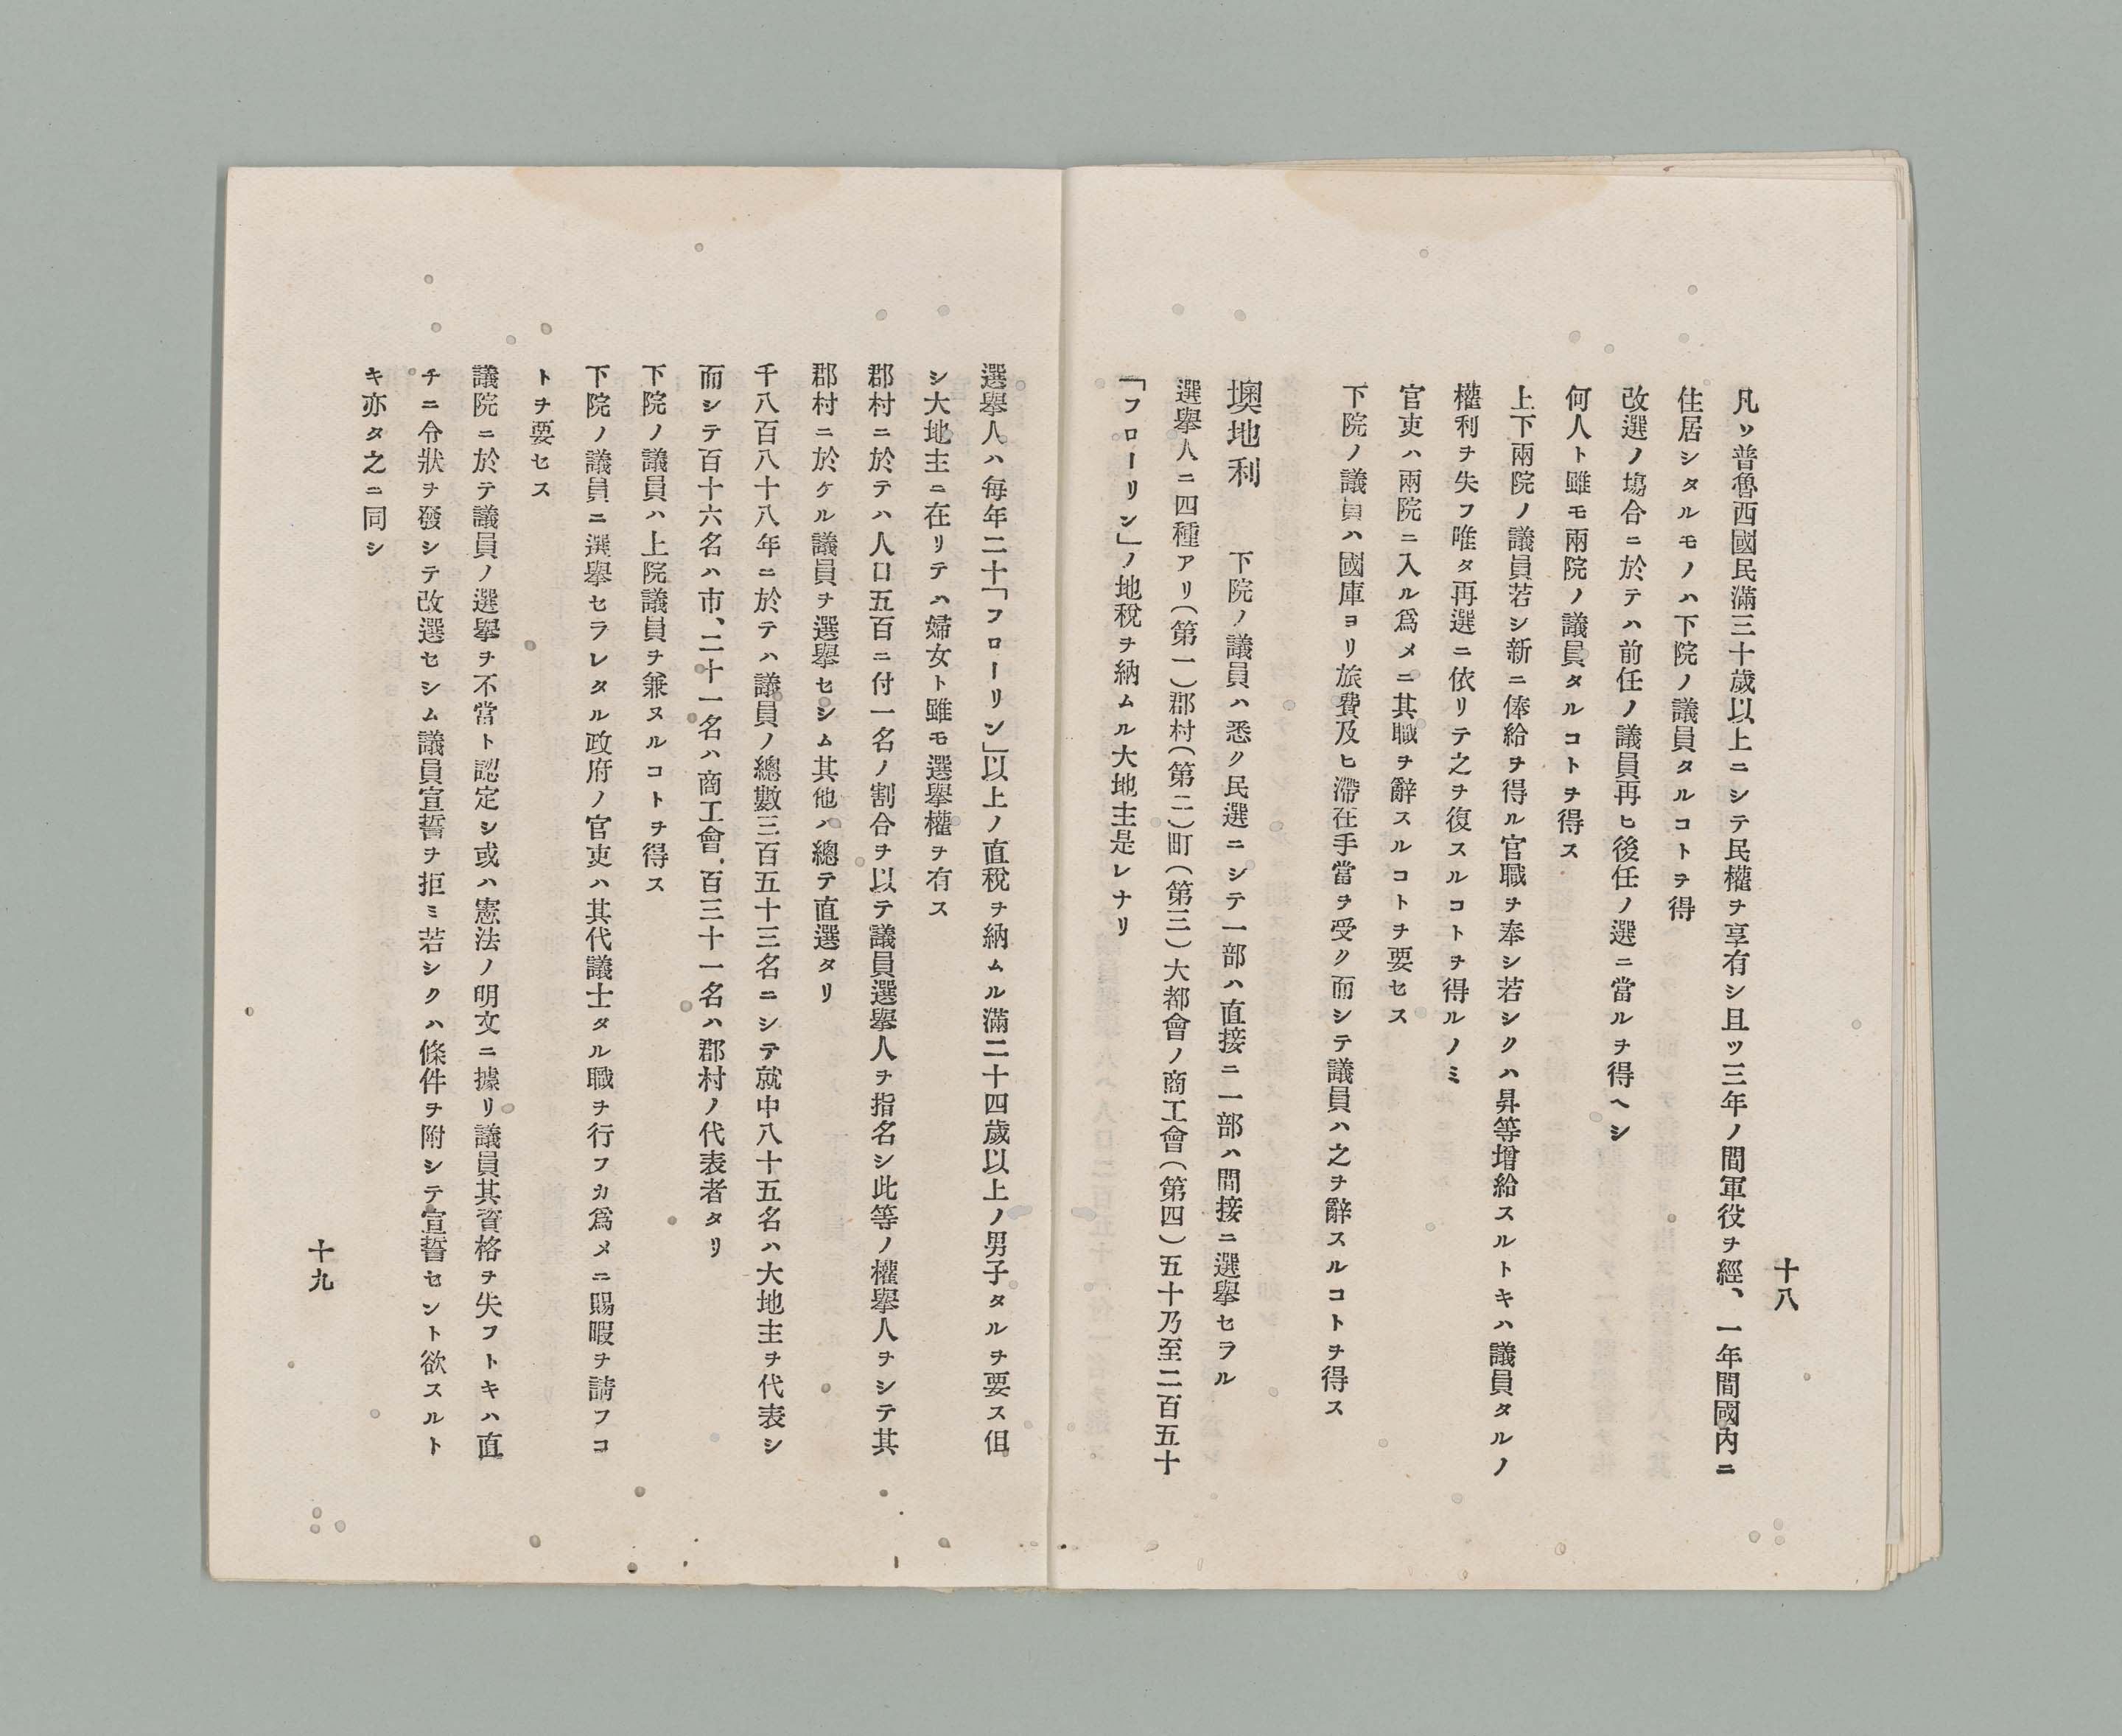 十八
凡ソ普魯西國民滿三十歲以上ニシテ民權ヲ享有シ且ツ三年ノ間軍役ヲ經、一年間國內ニ
住居シタルモノハ下院ノ議員タルコトヲ得
改選ノ塲合ニ於テハ前任ノ議員再ヒ後任ノ選ニ當ルヲ得ヘシ
何人ト雖モ兩院ノ議員タルコトヲ得ス
上下兩院ノ議員若シ新ニ俸給ヲ得ル官職ヲ奉シ若シクハ昇等增給スルトキハ議員タルノ
權利ヲ失フ唯タ再選ニ依リテ之ヲ復スルコトヲ得ルノミ
官吏ハ兩院ニ入ル爲メニ其職ヲ辭スルコトヲ要セス
下院ノ議員ハ國庫ヨリ旅費及ヒ滯在手當ヲ受ク而シテ議員ハ之ヲ辭スルコトヲ得ス
墺地利　下院ノ議員ハ悉ク民選ニシテ一部ハ直接ニ一部ハ間接ニ選擧セラル
選擧人ニ四種アリ(第一)郡村(第二)町(第三)大都會ノ商工會(第四)五十乃至二百五十
「フローリン」ノ地稅ヲ納ムル大地主是レナリ
選擧人ハ每年二十「フローリン」以上ノ直稅ヲ納ムル滿二十四歲以上ノ男子タルヲ要ス但
シ大地主ニ在リテハ婦女ト雖モ選擧權ヲ有ス
郡村ニ於テハ人口五百ニ付一名ノ割合ヲ以テ議員選擧人ヲ指名シ此等ノ權擧人ヲシテ其
郡村ニ於ケル議員ヲ選擧セシム其他ハ總テ直選タリ
千八百八十八年ニ於テハ議員ノ總數三百五十三名ニシテ就中八十五名ハ大地主ヲ代表シ
而シテ百十六名ハ市、二十一名ハ商工會、百三十一名ハ郡村ノ代表者タリ
下院ノ議員ハ上院議員ヲ兼ヌルコトヲ得ス
下院ノ議員ニ選擧セラレタル政府ノ官吏ハ其代議士タル職ヲ行フカ爲メニ賜暇ヲ請フコ
トヲ要セス
議院ニ於テ議員ノ選擧ヲ不當ト認定シ或ハ憲法ノ明文ニ據リ議員其資格ヲ失フトキハ直
チニ令狀ヲ發シテ改選セシム議員宣誓ヲ拒ミ若シクハ條件ヲ附シテ宣誓セント欲スルト
キ亦タ之ニ同シ
十九